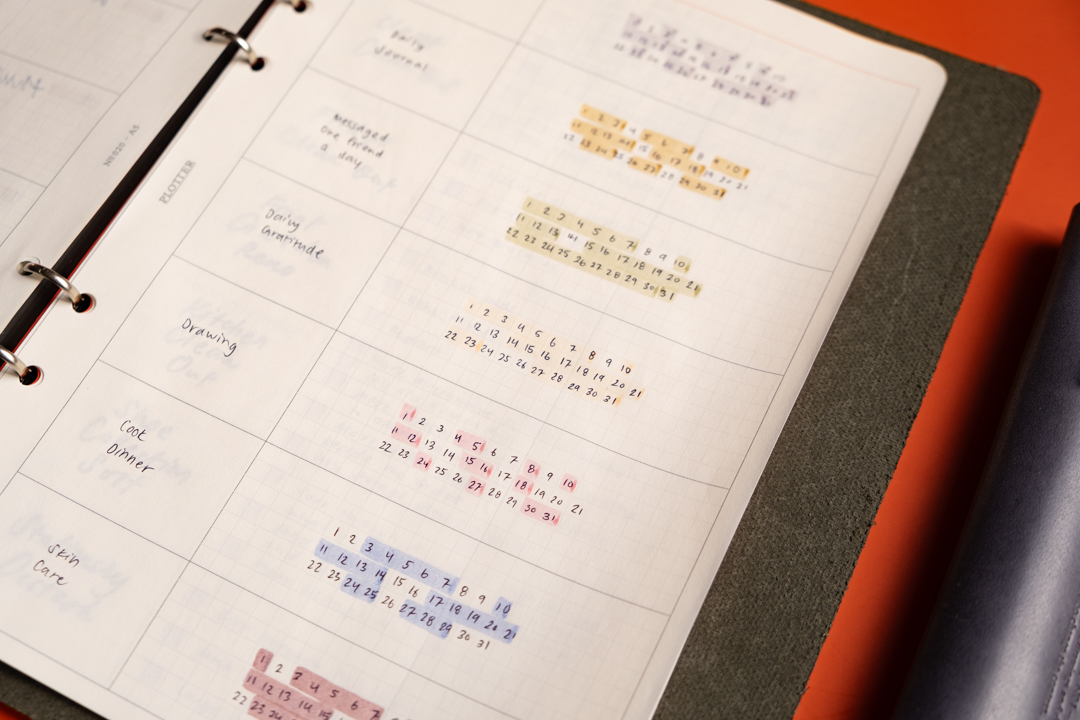 N°020 - A5
PLOTTER
Daily
Journal
Messaged
one friend
a day
1 2 3 4 5 6 7 8 9 10
11 12 13 14 15 16 17 18 19 20 21
22 23 24 25 26 27 28 29 30 31
Daily
Gratitude
1 2 3 4 5 6 7 8 9 10
11 12 13 14 15 16 17 18 19 20 21
22 23 24 25 26 27 28 29 30 31
Drawing
1 2 3 4 5 6 7 8 9 10
11 12 13 14 15 16 17 18 19 20 21
22 23 24 25 26 27 28 29 30 31
Cook
Dinner
1 2 3 4 5 6 7 8 9 10
11 12 13 14 15 16 17 18 19 20 21
22 23 24 25 26 27 28 29 30 31
Skin
Care
1 2 3 4 5 6 7 8 9 10
11 12 13 14 15 16 17 18 19 20 21
22 23 24 25 26 27 28 29 30 31
1 2 3 4 5 6 7
11 12 13 14 15
22 23 24